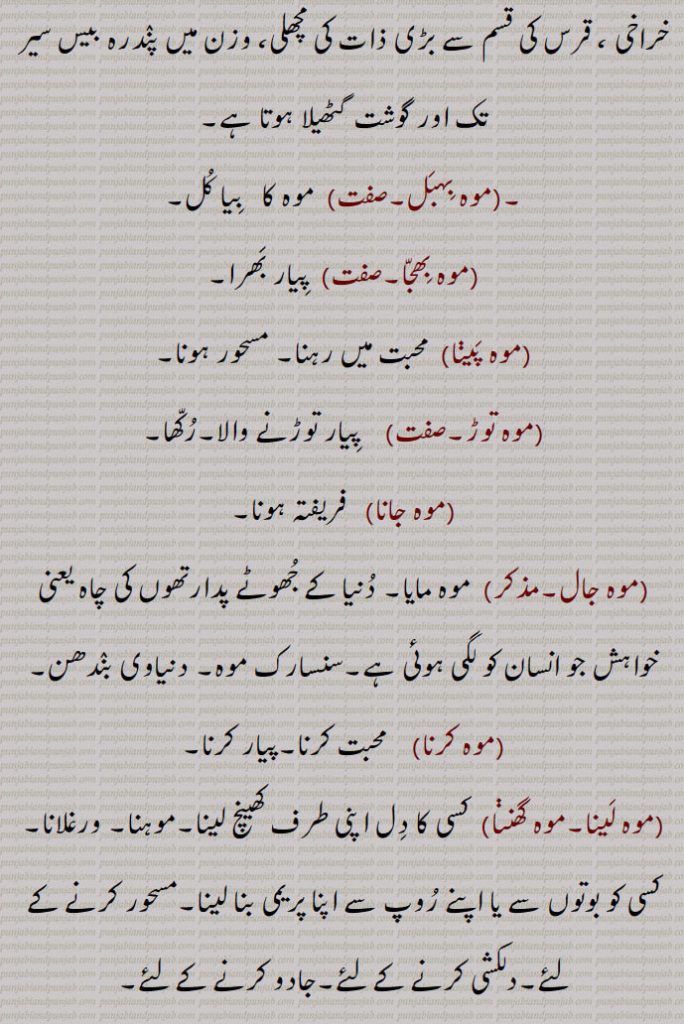 خراخی ، قرس کی قسم سے بڑی ذات کی مچھلی، وزن میں پندرہ بیس سیر
تک اور گوشت گٹھیلا ہوتا ہے۔
۔(موہ بِہبَل۔صفت) موہ کا بِیا کُل۔
(موہ بِھجّا۔صفت) پِیار بَھرا۔
(موہ پَینا) محبت میں رہنا۔ مسحور ہونا۔
(موہ توڑ۔صفت) پِیار توڑنے والا۔رُکّھا۔
(موہ جانا) فریفتہ ہونا۔
(موہ جال۔مذکر) موہ مایا۔ دُنیا کے جُھوٹے پدارتھوں کی چاہ یعنی
خواہش جو انسان کو لگی ہوئی ہے۔سنسارک موہ۔ دنیاوی بندھن۔
(موہ کرنا) محبت کرنا۔پیار کرنا۔
(موہ لَینا۔موہ گھننا) کسی کا دِل اپنی طرف کھینچ لینا۔موہنا۔ ورغلانا۔
کسی کو بوتوں سے یا اپنے رُوپ سے اپنا پریمی بنا لینا۔مسحور کرنے کے
لئے۔دلکشی کرنے کے لئے۔جادو کرنے کے لئے۔